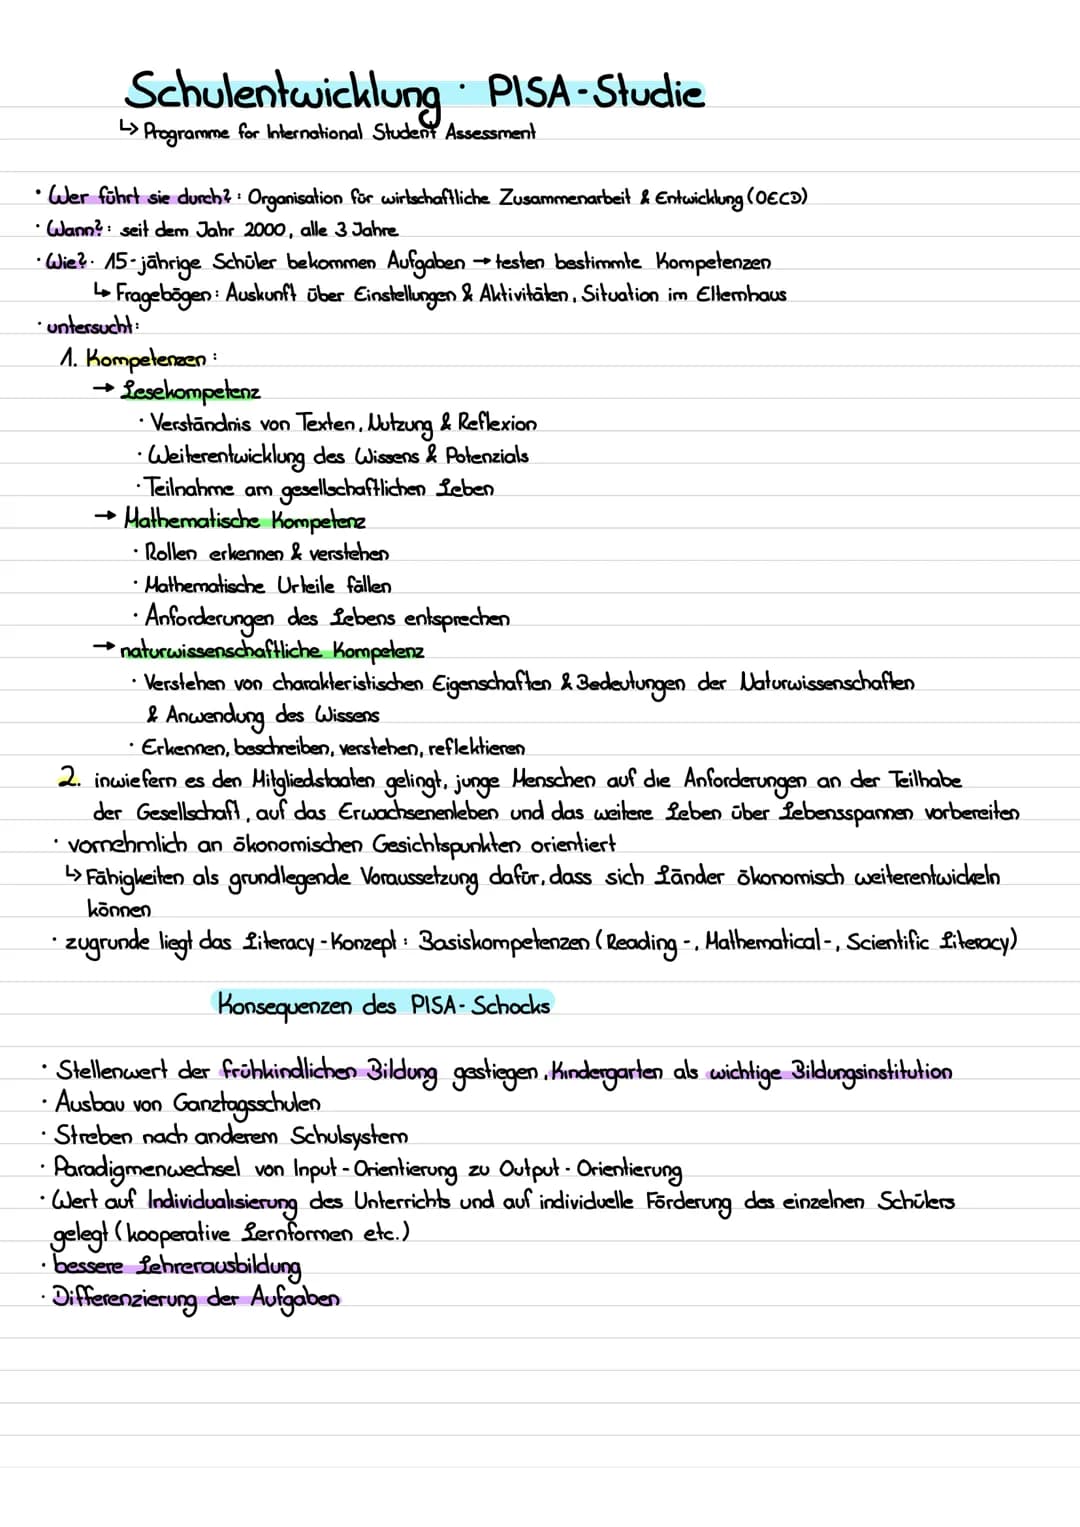 Schulentwicklung · PISA-Studie
↳ Programme for International Student Assessment
· Wer führt sie durch? : Organisation für wirtschaftliche Zusammenarbeit & Entwicklung (OECD)
· Wann? : seit dem Jahr 2000, alle 3 Jahre
· Wie? · 15-jährige Schüler bekommen Aufgaben → testen bestimmte Kompetenzen
↳ Fragebögen : Auskunft über Einstellungen & Aktivitäten, Situation im Elternhaus
· untersucht :
1. Kompetenzen :
→ Lesekompetenz
· Verständnis von Texten, Nutzung & Reflexion
· Weiterentwicklung des Wissens & Potenzials
· Teilnahme am gesellschaftlichen Leben
→ Mathematische Kompetenz
· Rollen erkennen & verstehen
· Mathematische Urteile fällen
· Anforderungen des Lebens entsprechen
→ naturwissenschaftliche Kompetenz
· Verstehen von charakteristischen Eigenschaften & Bedeutungen der Naturwissenschaften
& Anwendung des Wissens
· Erkennen, beschreiben, verstehen, reflektieren
2. inwiefern es den Mitgliedstaaten gelingt, junge Menschen auf die Anforderungen an der Teilhabe
der Gesellschaft, auf das Erwachsenenleben und das weitere Leben über Lebensspannen vorbereiten
· vornehmlich an ökonomischen Gesichtspunkten orientiert
↳ Fähigkeiten als grundlegende Voraussetzung dafür, dass sich Länder ökonomisch weiterentwickeln
können
· zugrunde liegt das Literacy-Konzept : Basiskompetenzen (Reading-, Mathematical-, Scientific Literacy)
Konsequenzen des PISA-Schocks
· Stellenwert der frühkindlichen Bildung gestiegen, Kindergarten als wichtige Bildungsinstitution
· Ausbau von Ganztagsschulen
· Streben nach anderem Schulsystem
· Paradigmenwechsel von Input-Orientierung zu Output-Orientierung
· Wert auf Individualisierung des Unterrichts und auf individuelle Förderung des einzelnen Schülers
gelegt (kooperative Lernformen etc.)
· bessere Lehrerausbildung
· Differenzierung der Aufgaben